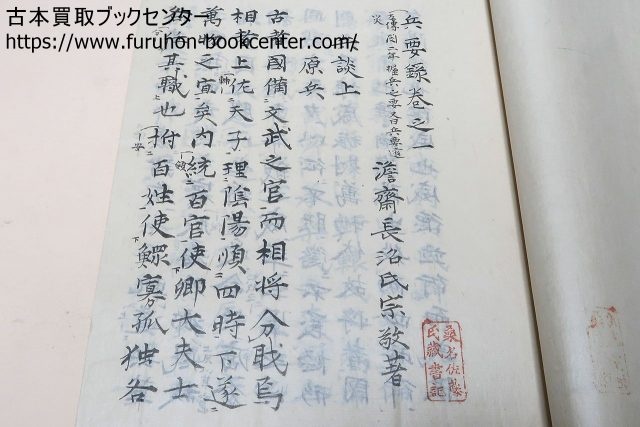 古本買取ブックセンター
https://www.furuhon-bookcenter.com/
兵要録巻之一
澹齋長沼氏宗敬著
兵談上
原兵
古者國備文武之官而相將分職焉
相者上佐天子理陰陽順四時下遂
萬物之宜矣内統百官使卿大夫士
各其職也拊百姓使鰥寡孤独各
桑名佐藤
氏藏書記